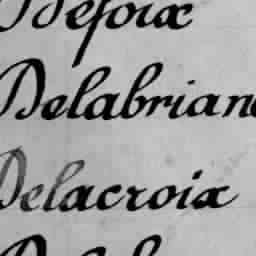 Defoix
Delabrian
Delacroix